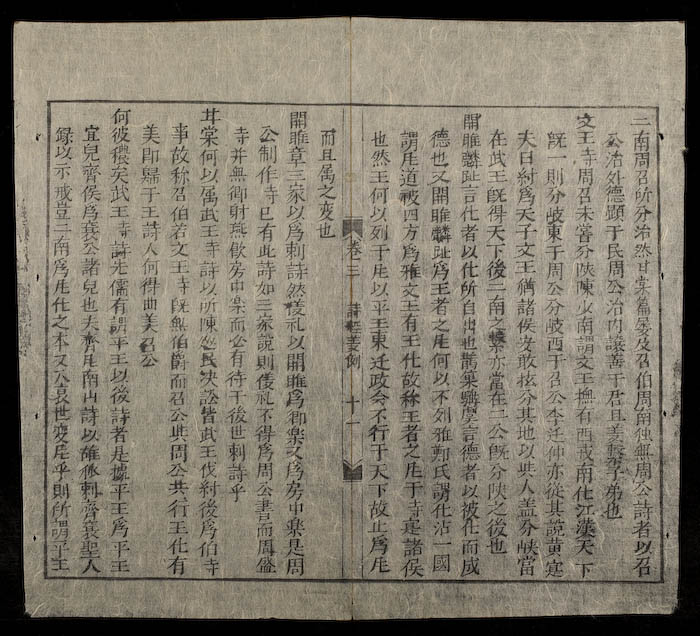 二南周召所分治然甘棠篇處及召伯周南独無周公詩者以召
公治外德顕于民周公治内譲善于君且義繋子弟也
文王寺周召未甞分陝陳少南謂文王撫有西戎南化江漢天下
既一則分岐東于周公分岐西于召公李迂仲亦従其説黄寔
夫曰紂爲天子文王猶諸侯安敢分其地以与人盖分峡當
在武王既得天下後二南之繋亦當在二公既分陕之後也
関雎麟趾言化者以化所自出也鵲巢騶虞言德者以被化而成
德也又関雎麟趾爲王者之𠙖何以不列雅鄭氏謂化沾一國
謂𠙖道被四方爲雅文王有王化故称王者之𠙖于寺寔諸侯
也然王何以列于𠙖以平王東迁政令不行于天下故止爲𠙖
卷三 詩經義例 十一
而且属之变也
関雎章三家以爲刺詩然儀礼以関雎爲郷樂又爲房中樂是周
公制作寺已有此詩如三家説則儀礼不得爲周公書而周盛
寺并無郷射燕飲房中樂而必有待于後世刺詩乎
甘棠何以属武王寺詩以所陳巡民决訟皆武王伐紂後爲伯寺
事故称召伯若文王寺既無伯爵而召公与周公共行王化有
美即歸于王詩人何得曲美召公
何彼穠矣武王寺詩先儒有謂平王以後詩者是據平王爲平王
宜兒齊侯爲襄公諸兒也夫齊𠙖南山詩以雄狐刺齊襄聖人
録以示戒豈二南爲𠙖化之本又入衰世变𠙖乎則所謂平王